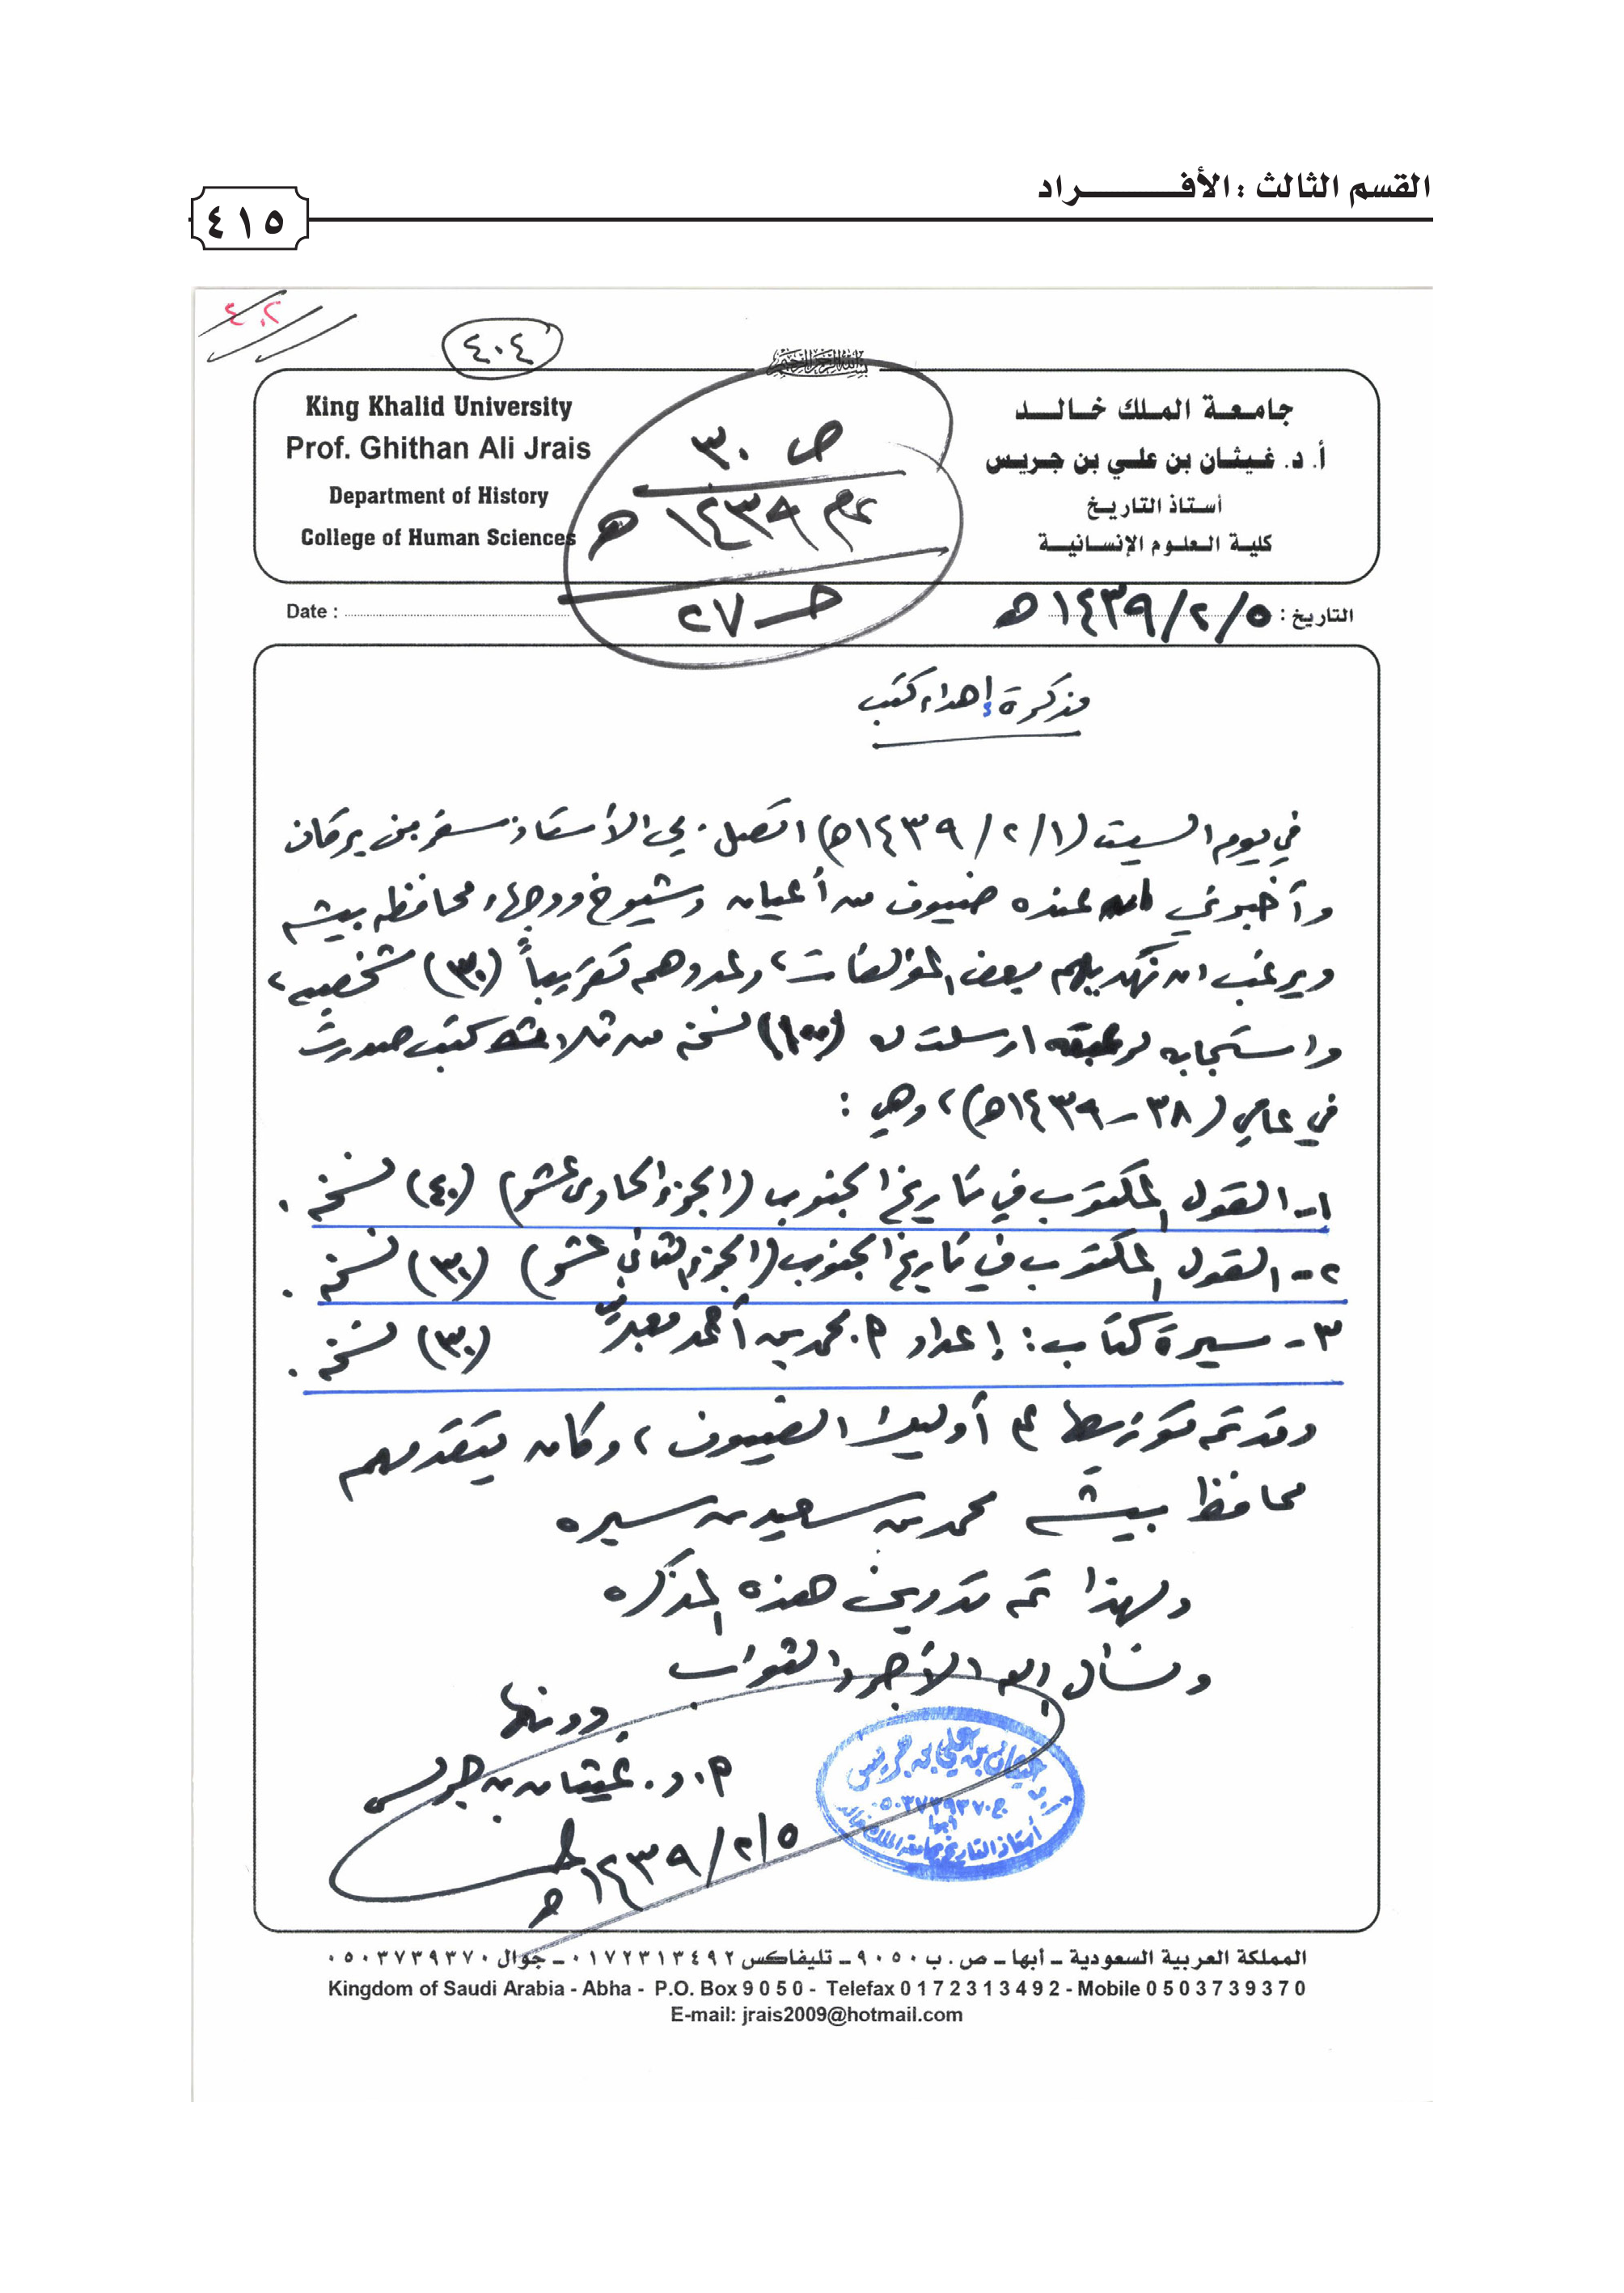 القسم الثالث : الأفـــــــراد
٤١٥
٤٠٢
٤٠٤
بسم الله الرحمن الرحيم
King Khalid University
Prof. Ghithan Ali Jrais
Department of History
College of Human Sciences
جامعة الملك خالد
أ. د. غيثان بن علي بن جريس
أستاذ التاريخ
كلية العلوم الإنسانية
ص ٣٠
١٤٣٩ هـ
حـ ٢٧
Date :
التاريخ : ١٤٣٩/٢/٥ هـ
مذكرة إهداء كتب
في يوم السبت (١٤٣٩/٢/١هـ) اتصل بي الأستاذ سفر بن برقان
وأخبرني عنده ضيوف من أعيان وشيوخ ووجهاء محافظه بيشه
ويرغب ان نهديهم بعض المؤلفات، وعددهم تقريباً (٣٠) شخصيه،
واستجابه لرغبته ارسلت له (١٠٠) نسخه من ثلاثة كتب صدرت
في عامي (٣٨ – ١٤٣٩هـ)، وهي :
١- القول المكتوب في تاريخ الجنوب (الجزء الحادي عشر) (٤٠) نسخه .
٢- القول المكتوب في تاريخ الجنوب (الجزء الثاني عشر) (٣٠) نسخه .
٣- مسيرة كتاب : إعداد م. محمد بن أحمد معبر (٣٠) نسخه .
وقد تم توزيعها على أوليك الضيوف، وكان يتقدمهم
محافظ بيشه محمد بن سعيد بن سبره
ولهذا تم تدوين هذه المذكره
ونسأل الله الأجر والثواب
دونها
أ. د. غيثان بن جريس
١٤٣٩/٢/٥ هـ
غيثان بن علي بن جريس
ج ٠٥٠٣٧٣٩٣٧٠
أبها
أستاذ التاريخ بجامعة الملك خالد
المملكة العربية السعودية ـ أبها ـ ص . ب ٩٠٥٠ ـ تليفاكس ٠١٧٢٣١٣٤٩٢ ـ جوال ٠٥٠٣٧٣٩٣٧٠
Kingdom of Saudi Arabia - Abha - P.O. Box 9 0 5 0 - Telefax 0 1 7 2 3 1 3 4 9 2 - Mobile 0 5 0 3 7 3 9 3 7 0
E-mail: jrais2009@hotmail.com